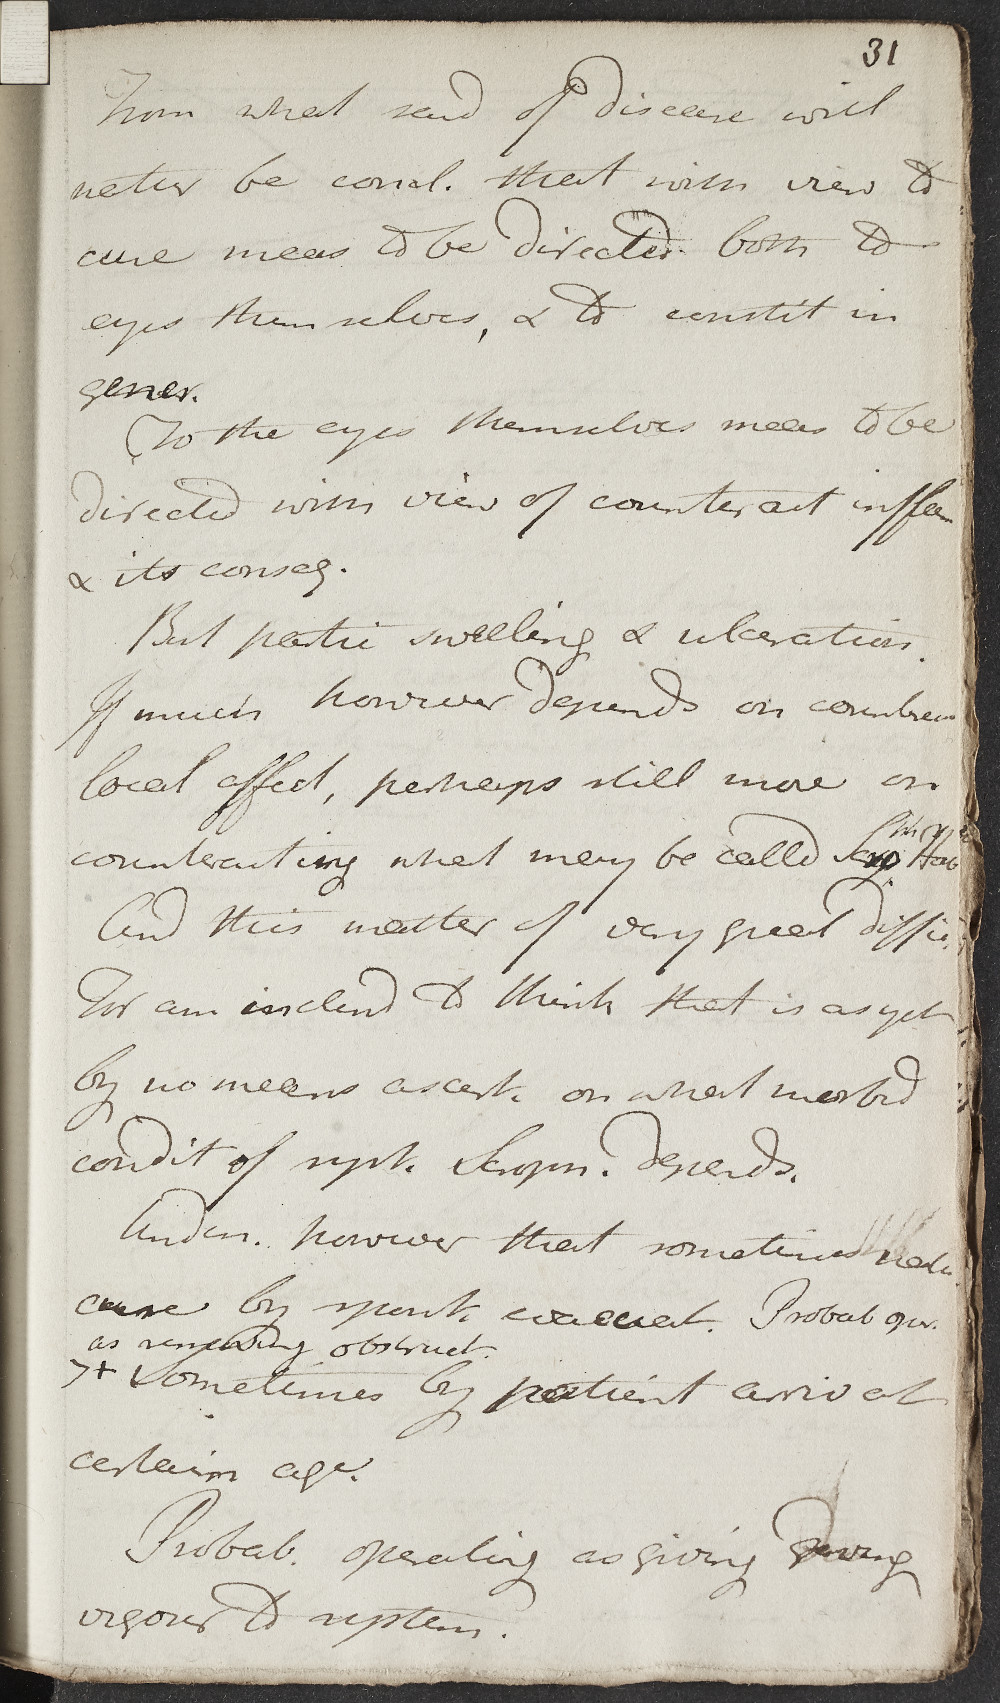 31
From what said of disease will
natur be concl. that with view to
cure meas to be directed both to
eyes themselves, & to constit in
gener.
To the eyes themselves meas to be
directed with view of counteract inflam
& its conseq.
But partic swelling & ulceration.
If much however depends on counter
local affect, perhaps still more on
counteracting what may be called
And this matter of very great diffic.
For am inclind to think that is as yet
by no means ascert. on what morbid
condit of syst. Scropn. depends.
Undon. however that sometimes
cure by spont. evacuat. Probab oper.
as removing obstruct.
7+ Sometimes by patient arriv at
certain age.
Probab. operating as giving
vigour to system.